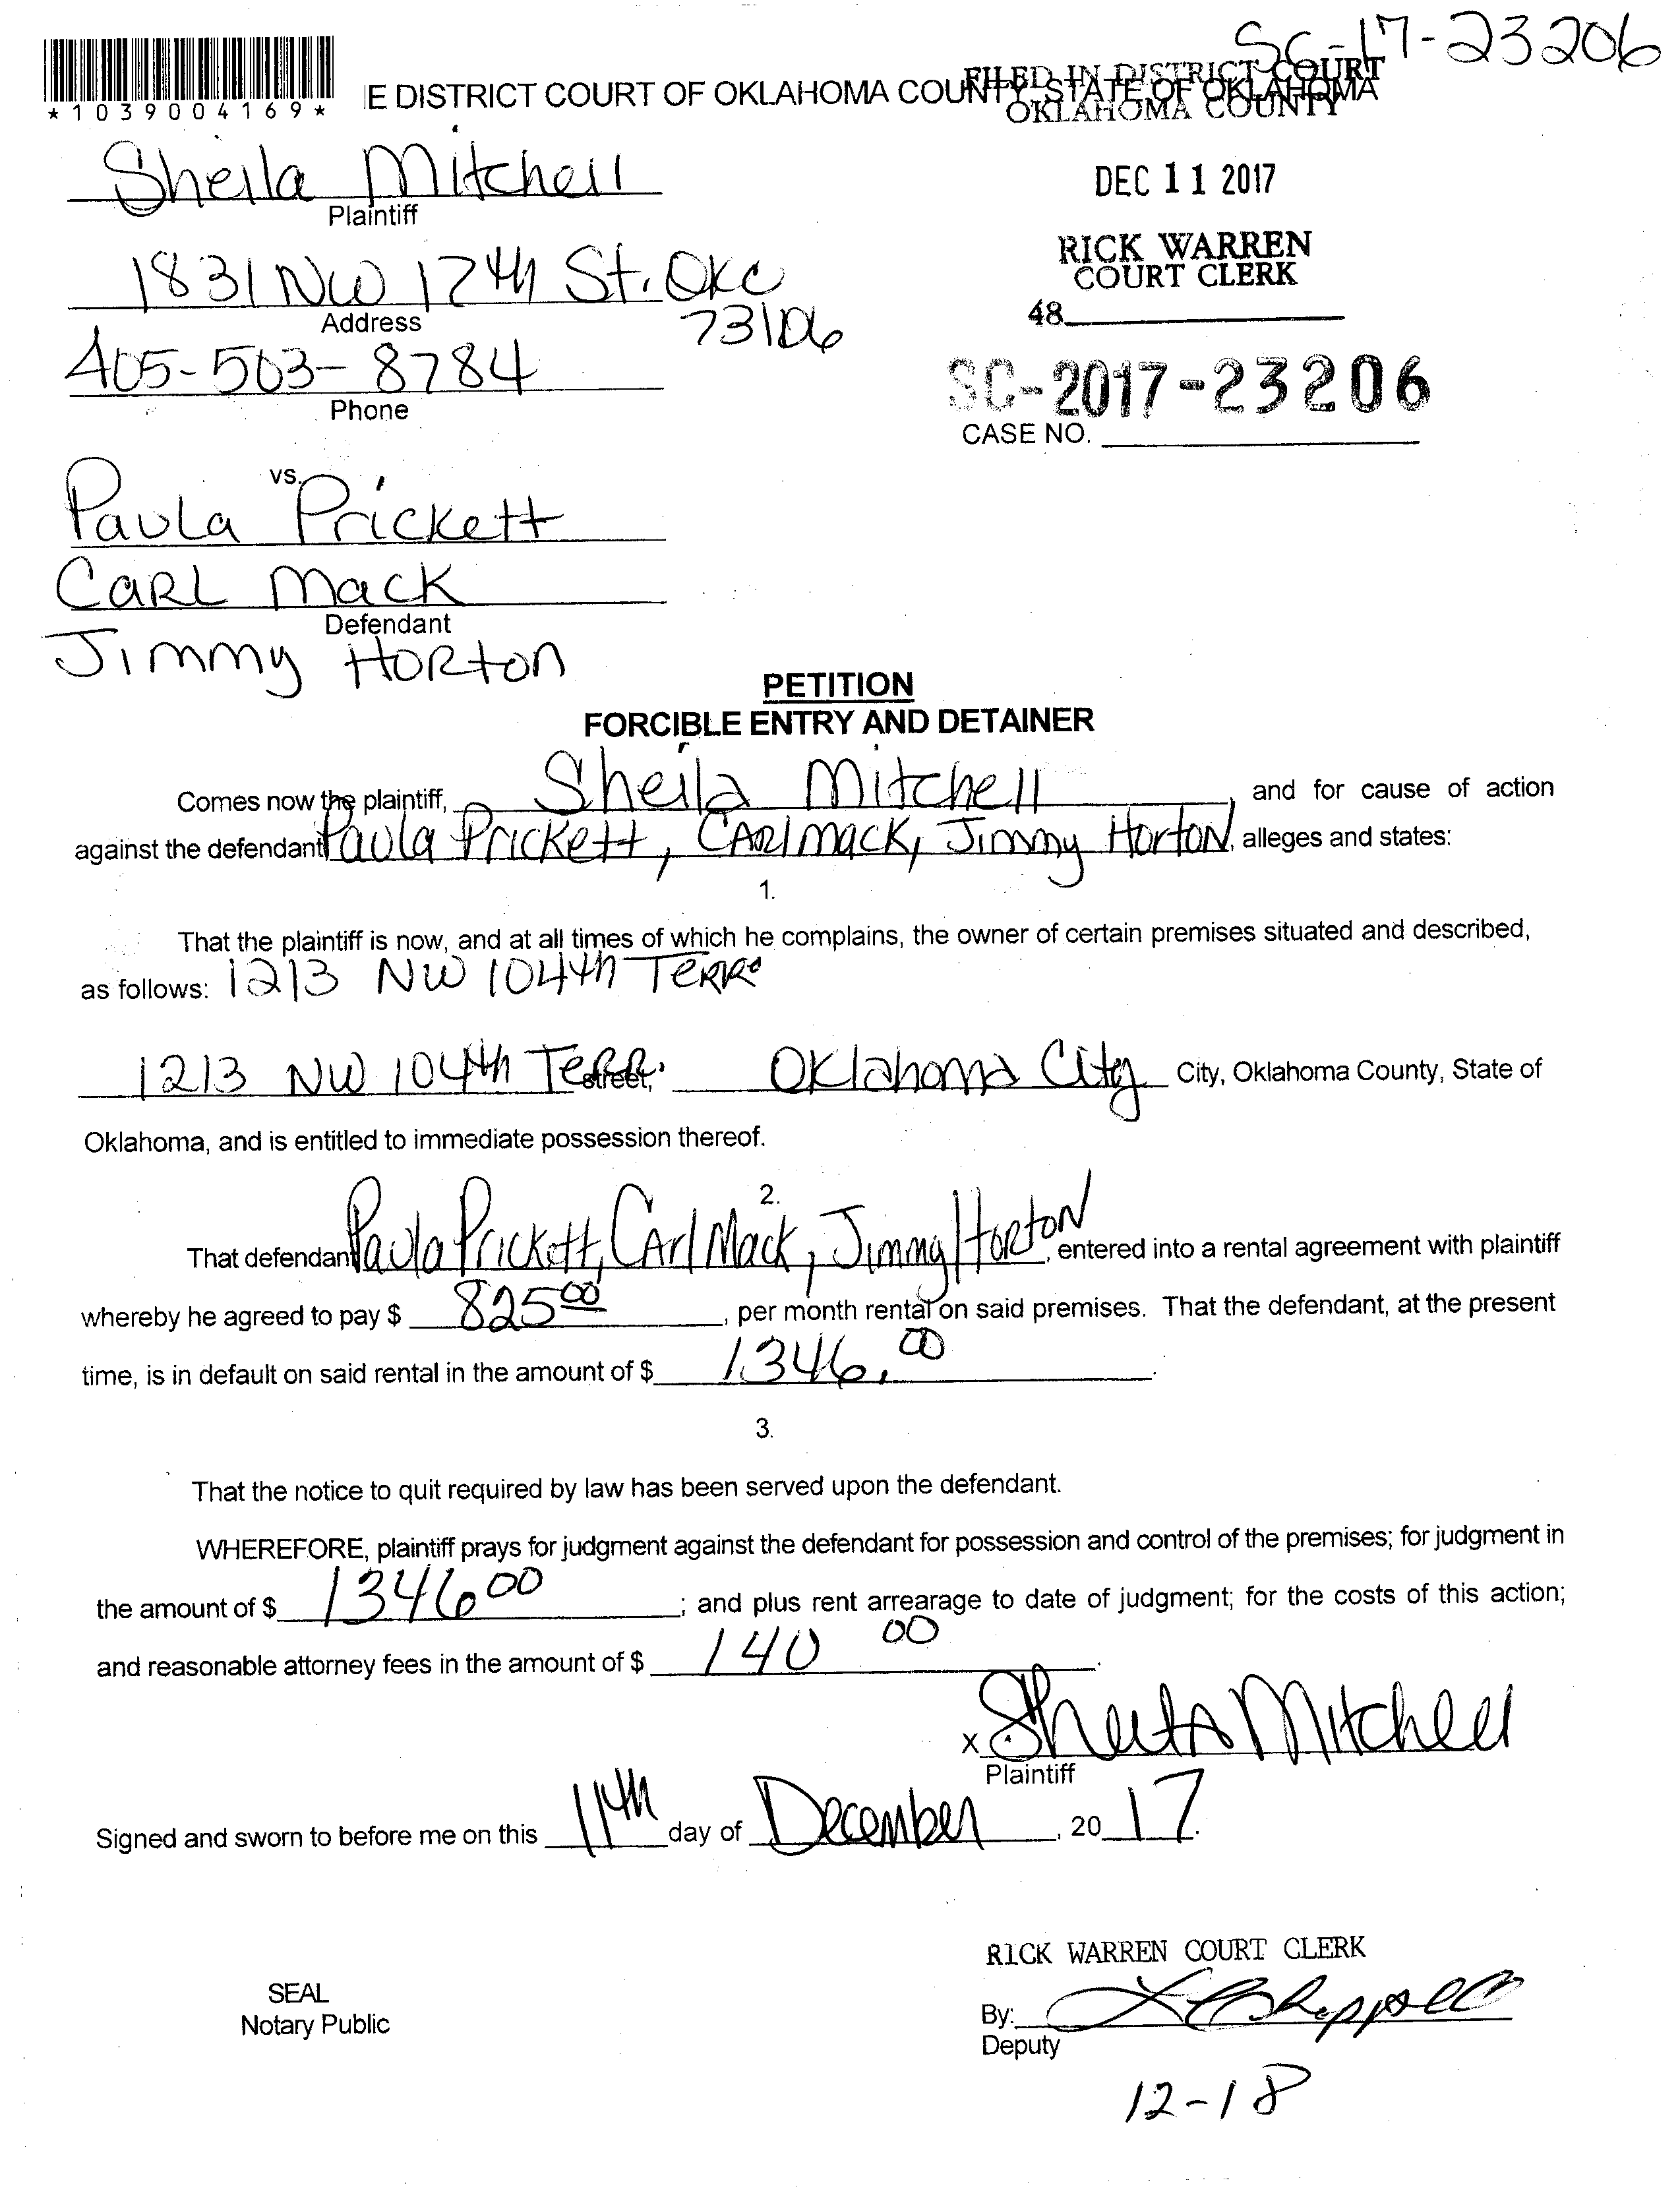 SC-17-23206
*1039004169*
E DISTRICT COURT OF OKLAHOMA COUNTY STATE OF OKLAHOMA
FILED IN DISTRICT COURT
OKLAHOMA COUNTY
Sheila Mitchell
Plaintiff
DEC 11 2017
1831 NW 17th St. OKC
73106
Address
RICK WARREN
COURT CLERK
48
405-503-8784
Phone
SC-2017-23206
CASE NO.
vs.
Paula Prickett
Carl Mack
Defendant
Jimmy Horton
PETITION
FORCIBLE ENTRY AND DETAINER
Comes now the plaintiff, Sheila Mitchell, and for cause of action
against the defendant Paula Prickett, CARl Mack, Jimmy Horton, alleges and states:
1.
That the plaintiff is now, and at all times of which he complains, the owner of certain premises situated and described,
as follows: 1213 NW 104th TERR.
1213 NW 104th TERR. street, Oklahoma City City, Oklahoma County, State of
Oklahoma, and is entitled to immediate possession thereof.
2.
That defendant Paula Prickett, CArl Mack, Jimmy Horton, entered into a rental agreement with plaintiff
whereby he agreed to pay $ 825 00, per month rental on said premises. That the defendant, at the present
time, is in default on said rental in the amount of $ 1346.00.
3.
That the notice to quit required by law has been served upon the defendant.
WHEREFORE, plaintiff prays for judgment against the defendant for possession and control of the premises; for judgment in
the amount of $ 1346 00; and plus rent arrearage to date of judgment; for the costs of this action;
and reasonable attorney fees in the amount of $ 140 00.
X Sheila Mitchell
Plaintiff
Signed and sworn to before me on this 11th day of December, 2017.
RICK WARREN COURT CLERK
SEAL
Notary Public
By:
Deputy
12-18